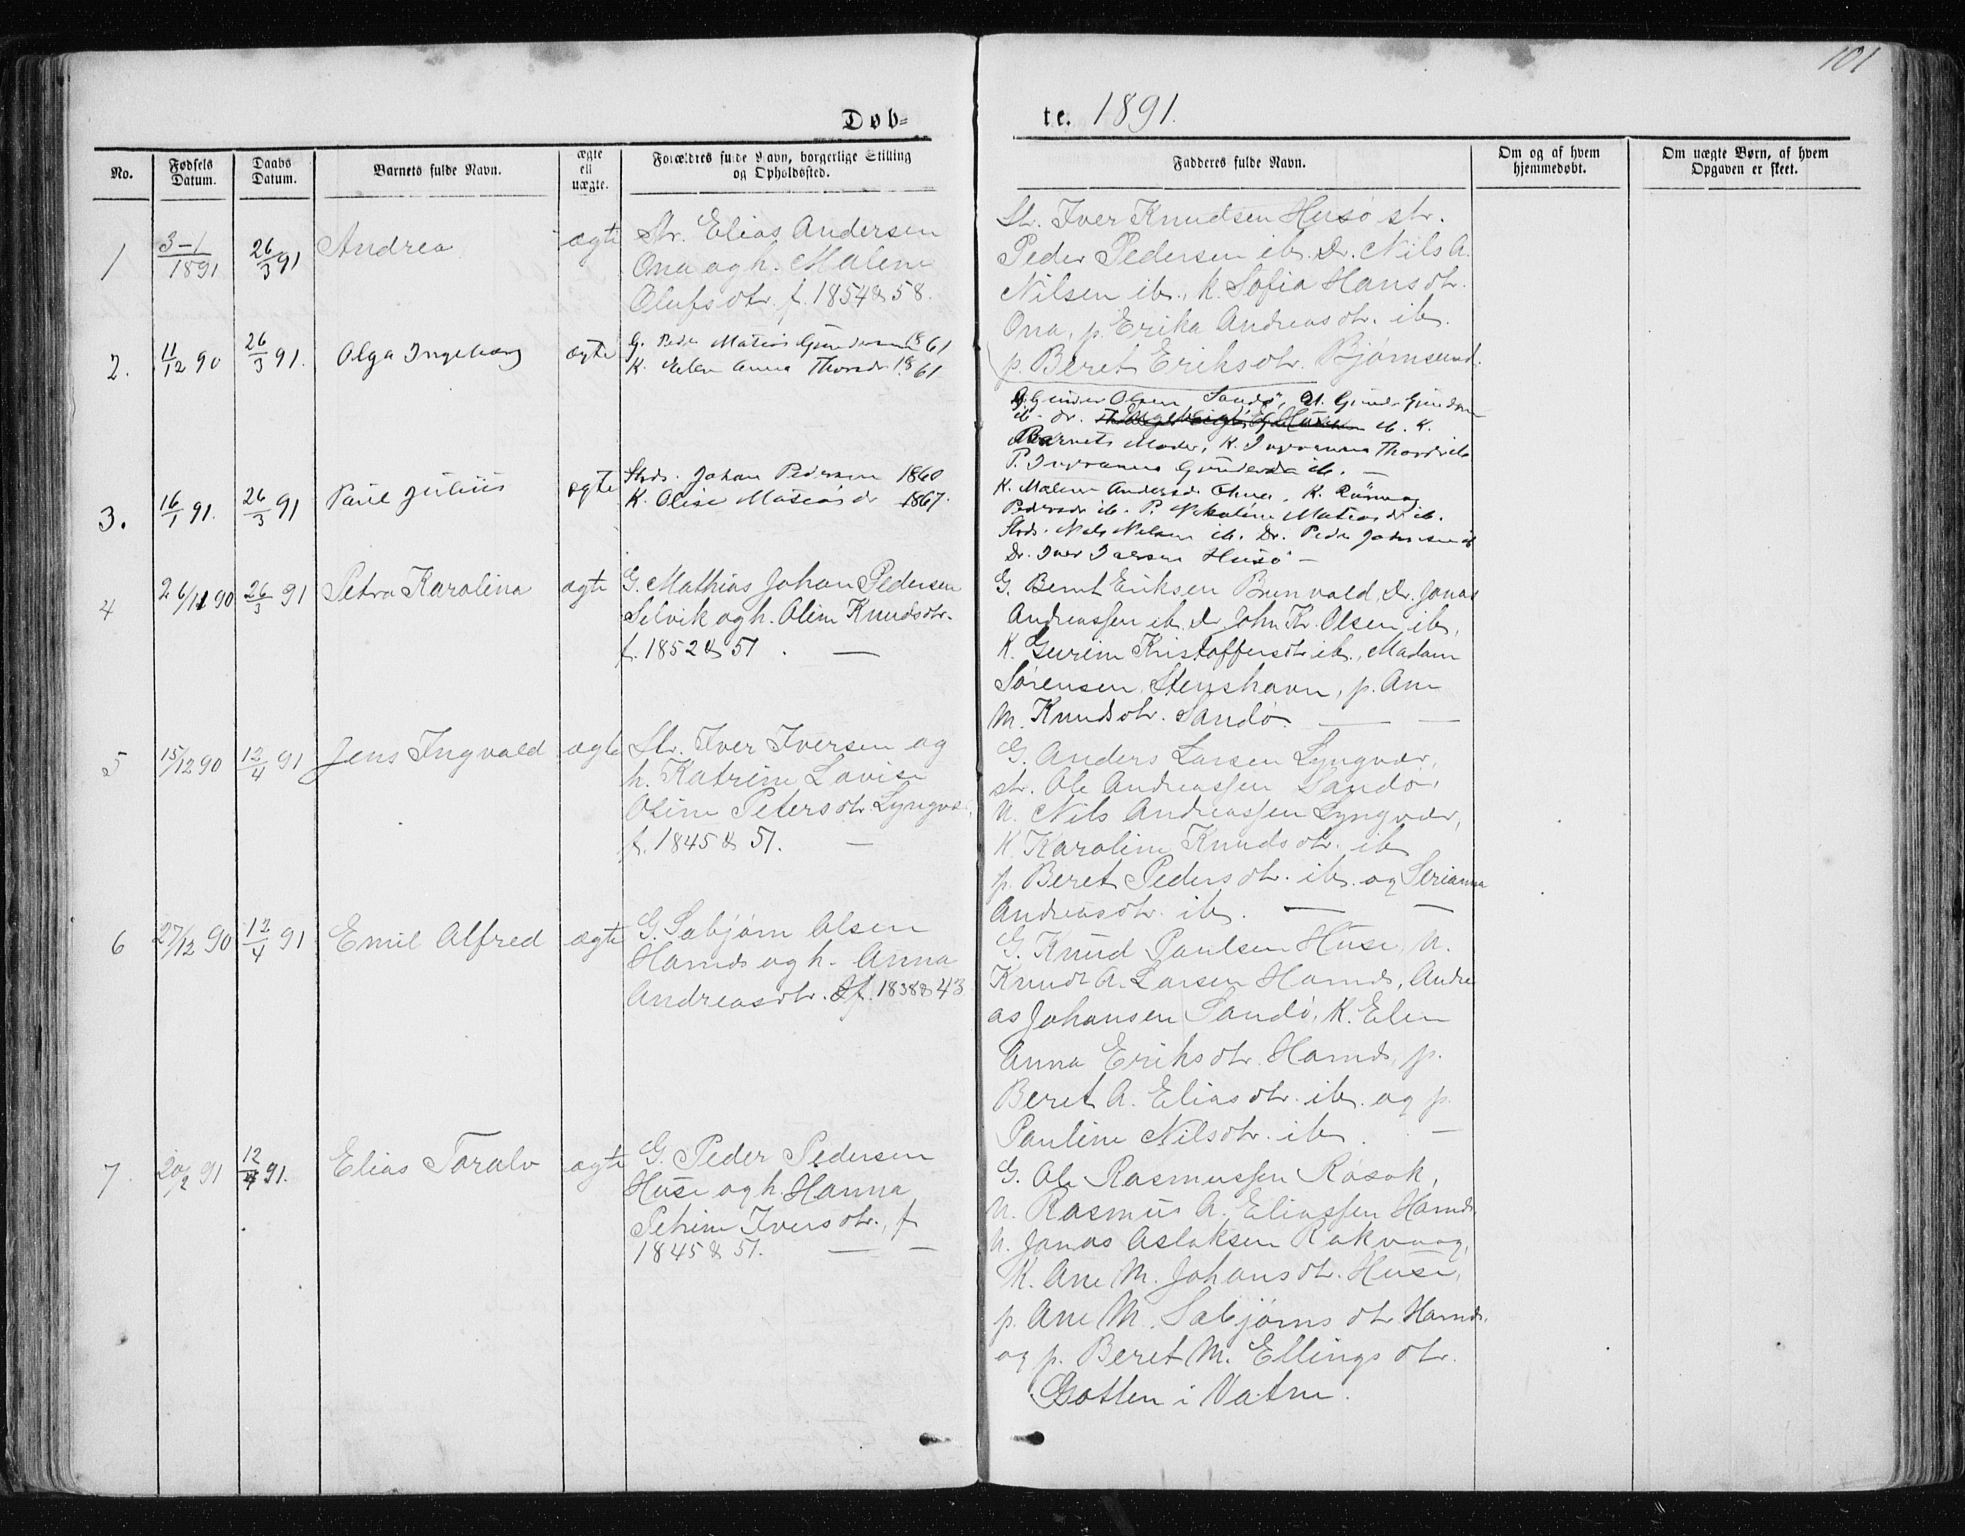 101
Døb-
te. 1891.
No.
Fødsels Datum.
Daabs Datum.
Barnets fulde Navn.
ægte ell uægte.
Forældres fulde Navn, borgerlige Stilling
og Opholdssted.
Fadderes fulde Navn.
Om og af hvem
hjemmedøbt.
Om uægte Børn, af hvem
Opgaven er skeet.
1
3-1/1891
26/3 91
Andrea
ægte
Str. Elias Andersen
Ona og h. Malene
Olufsdtr. f. 1854 & 58.
St. Iver Knudsen Husø str.
Peder Pedersen ib. Dr. Nils A.
Nilsen ib., K. Sofia Hansdtr.
Ona, p. Erika Andreasdtr. ib.
p. Beret Eriksdtr. Bjørnsund.
2.
11/12 90
26/3 91.
Olga Ingeborg
ægte
G. Peder Matias Gundersen 1861
K. Elen Anna Thorsdr 1861
G. Gunder Olsen Sandø, U. Gunder Gunders
ib. dr. ib. K.
Barnets Moder, K. Thordr ib
P. Gundersda ib. —
3.
16/1 91.
26/3 91
Paul Julius
ægte
Strds. Johan Pedersen 1860
K. Olise Matiasdr 1867.
K. Malene Andersdr Ohna, K.
Pedersdr ib. P. Nikoline Matiasdr ib.
Strds. Nils Nilsen ib. Dr. Peder Johnsen ib
Dr. Iver Iversen Husø —
4
26/11 90
26/3 91
Petra Karolina
ægte
G. Mathias Johan Pedersen
Selvik og h. Oline Knudsdtr.
f. 1852 & 57. —
G. Bernt Eriksen Brunvald, Dr. Jonas
Andreassen ib. Dr John Kr. Olsen ib.
K. Gurine Kristoffersdtr ib., Madam
Sørensen Stenshavn, p. Ane
M. Knudsdtr. Sandø. — —
5
15/12 90
12/4 91
Jens Ingvald
ægte
Str. Iver Iversen og
h. Katrine Lovise
Oline Petersdtr. Lyngvær,
f. 1845 & 51. —
G. Anders Larsen Lyngvær,
str. Ole Andreassen Sandø,
U. Nils Andreassen Lyngvær,
K. Karoline Knudsdtr. ib
p. Beret Pedersdtr. ib. og Serianna
Andreasdtr. ib. — —
6
27/12 90
12/4 91
Emil Alfred
ægte
G. Sæbjørn Olsen
Harnes og h. Anna
Andreasdtr. f. 1838 & 43
G. Knud Paulsen Huse, U.
Knudt A. Larsen Harnes, Andre
as Johansen Sandø, K. Elen
Anna Eriksdtr. Harnes, p.
Beret A. Eliasdtr. ib. og p.
Pauline Nilsdtr. ib. —
7.
20/2 91
12/4 91.
Elias Toralv
ægte
G. Peder Pedersen
Huse og h. Hanna
Petrine Iversdtr., f
1845 & 51. — —
G. Ole Rasmussen Røsok,
U. Rasmus A. Eliassen Harnes
U. Jonas Aslaksen Rakvaag,
K. Ane M. Johansdtr. Huse,
p. Ane M. Sæbjørnsdtr Harnes.
og p. Beret M. Ellingsdtr.
Gotten i Vatne.